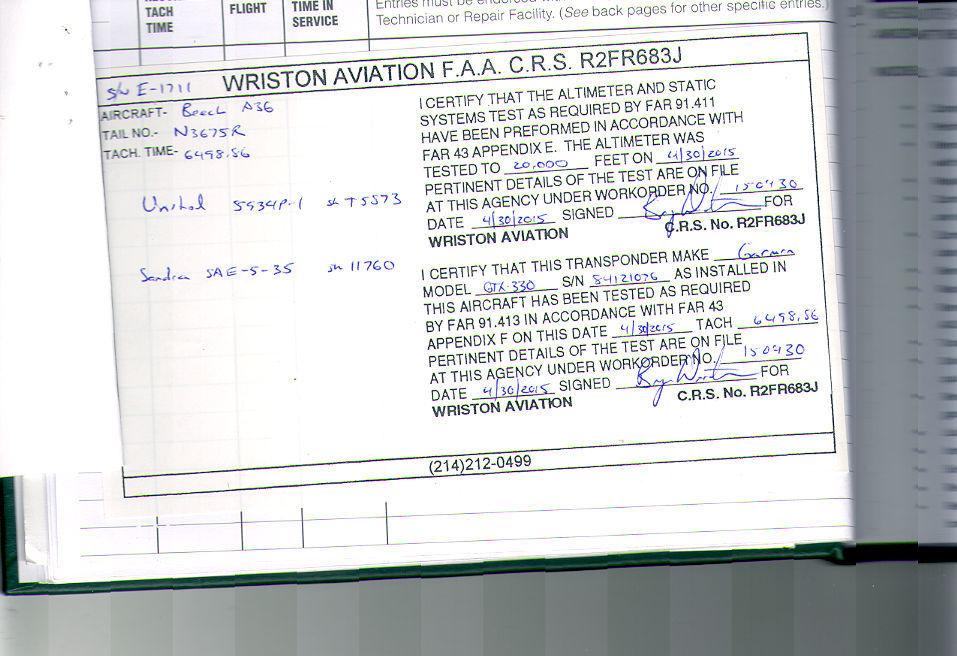 TACH
TIME
FLIGHT
TIME IN
SERVICE
Entries must be endorsed
Technician or Repair Facility. (See back pages for other specific entries.)
WRISTON AVIATION F.A.A. C.R.S. R2FR683J
S/N E-1711
AIRCRAFT- Beech A36
TAIL NO.- N3675R
TACH. TIME- 6498.56
United 5934P-1 sn T5573
Sandia SAE-5-35 sn 11760
I CERTIFY THAT THE ALTIMETER AND STATIC
SYSTEMS TEST AS REQUIRED BY FAR 91.411
HAVE BEEN PREFORMED IN ACCORDANCE WITH
FAR 43 APPENDIX E. THE ALTIMETER WAS
TESTED TO 20,000 FEET ON 4/30/2015
PERTINENT DETAILS OF THE TEST ARE ON FILE
AT THIS AGENCY UNDER WORKORDER NO. 150430
DATE 4/30/2015 SIGNED FOR
WRISTON AVIATION C.R.S. No. R2FR683J
I CERTIFY THAT THIS TRANSPONDER MAKE Garmin
MODEL GTX-330 S/N 84121076 AS INSTALLED IN
THIS AIRCRAFT HAS BEEN TESTED AS REQUIRED
BY FAR 91.413 IN ACCORDANCE WITH FAR 43
APPENDIX F ON THIS DATE 4/30/2015 TACH 6498.56
PERTINENT DETAILS OF THE TEST ARE ON FILE
AT THIS AGENCY UNDER WORKORDER NO. 150430
DATE 4/30/2015 SIGNED FOR
WRISTON AVIATION C.R.S. No. R2FR683J
(214)212-0499